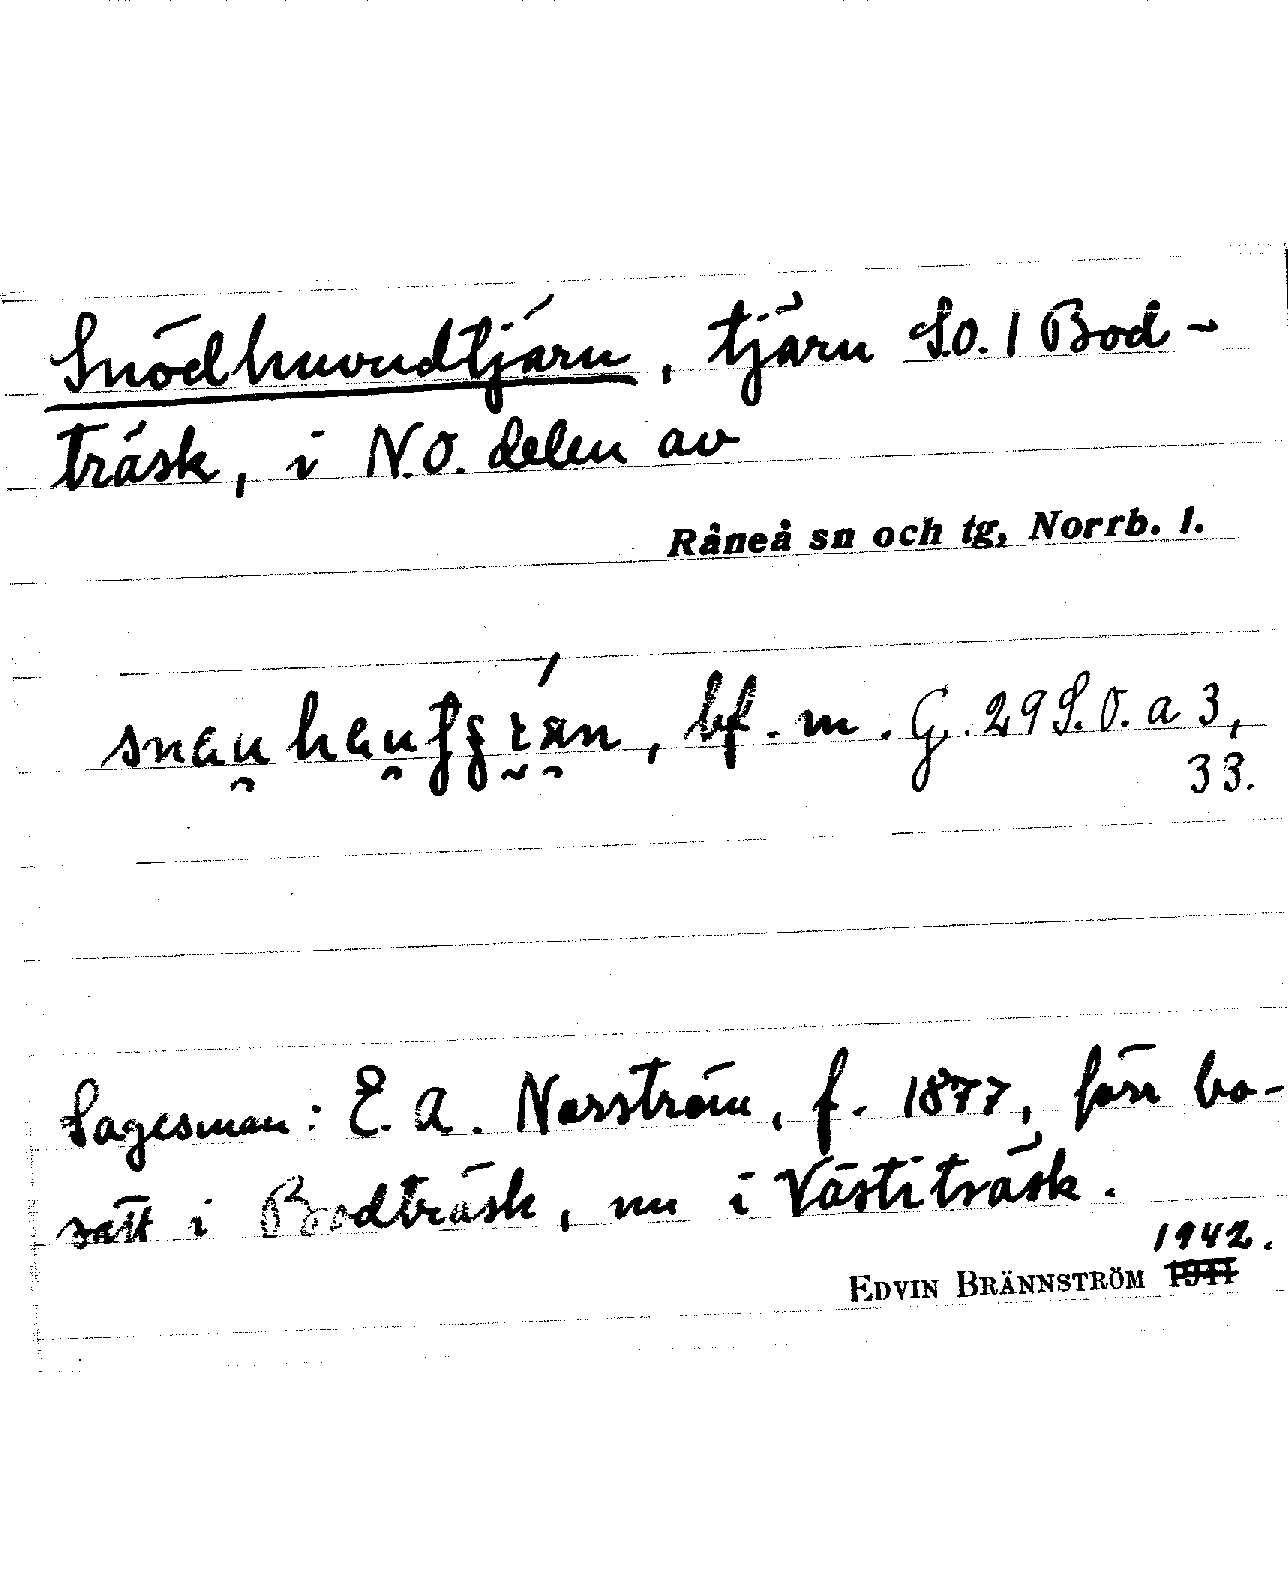 Snödhuvudtjärn, tjärn S.O. l Bod-
träsk, i N.O. delen av
Råneå sn och tg, Norrb. l.
bf. m. G. 29 S.O. a 3,
33.
Sagesman: E. A. Norström, f. 1877, förr bo-
satt i Bodträsk, nu i Västiträsk.
1942.
EDVIN BRÄNNSTRÖM 1941